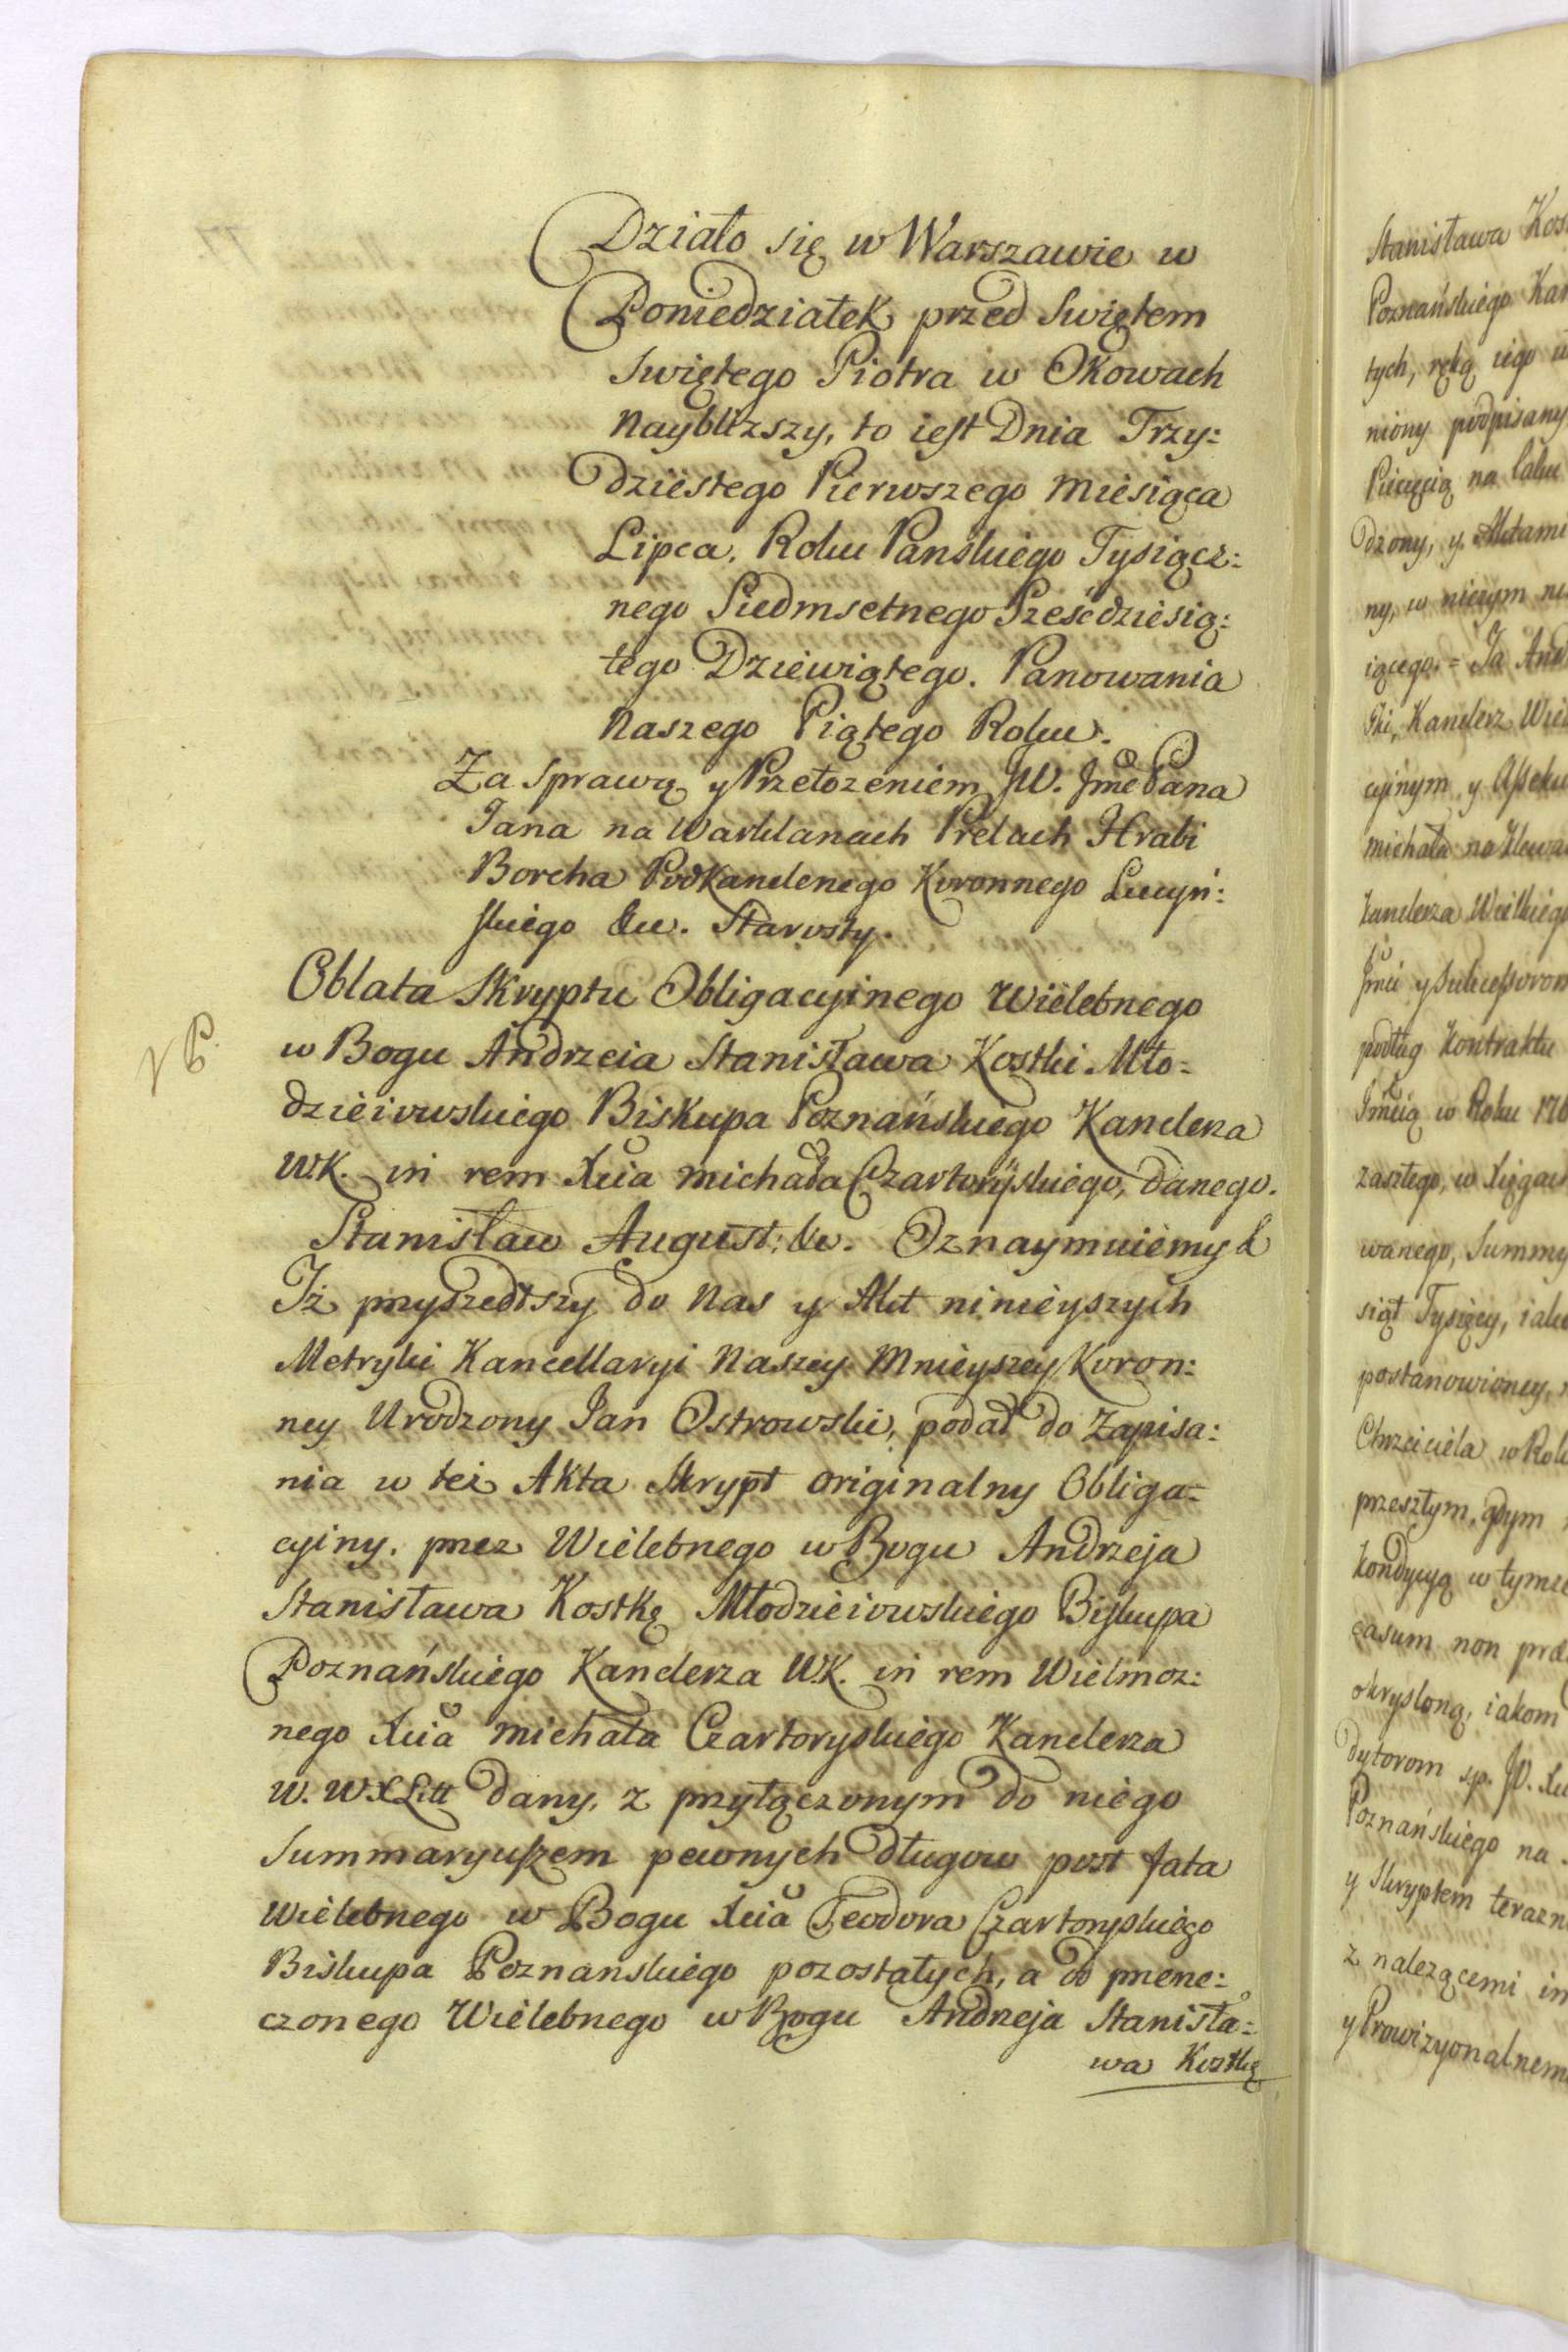 Działo się w Warszawie w
Poniedziałek przed Swiętem
Swiętego Piotra w Okowach
Nayblizszy, to iest Dnia Trzy:
dziestego Pierwszego Miesiąca
Lipca, Roku Panskiego Tysiącz:
nego Siedmsetnego Sześcdziesią:
tego Dziewiątego. Panowania
Naszego Piątego Roku.
Za Sprawą y Przełozeniem JW. Jmć Pana
Jana na Warklanach Prelach Hrabi
Borcha Podkanclerzego Koronnego Lucyń:
skiego &c. Starosty.
Oblata Skryptu Obligacyinego Wielebnego
w Bogu Andrzeia Stanisława Kostki Mło:
dzieiowskiego Biskupa Poznańskiego Kanclerza
W.K. in rem Xcia Michała Czartoryskiego, danego.
NP.
Stanisław August: &c. Oznaymuiemy &
Iż przyszedłszy do Nas y Akt ninieyszych
Metryki Kancellaryi Naszey Mnieyszey Koron:
ney Urodzony Jan Ostrowski, podał do Zapisa:
nia w też Akta Skrypt originalny Obliga:
cyiny. przez Wielebnego w Bogu Andrzeja
Stanisława Kostkę Młodzieiowskiego Biskupa
Poznańskiego Kanclerza W.K. in rem Wielmoz:
nego Xcia Michała Czartoryskiego Kanclerza
W. W.X.Litt dany, z przyłączonym do niego
Summaryuszem pewnych długow post fata
Wielebnego w Bogu Xcia Teodora Czartoryskiego
Biskupa Poznanskiego pozostałych, a do przerze:
czonego Wielebnego w Bogu Andrzeja Stanisła:
wa Kostkę
Stanisława
Poznańskiego
tych, ręką iego
niony podpisany
Pieczęcią na laku
dzony, y Aktami
ny, w niczym
iącego. = Ja
ski, Kanclerz
cyinym y
Michała na
Kanclerza Wielkiego
Jmci y Sukcessorom
podług Kontraktu
Jmcią w Roku
zaszłego, w Xięgach
wanego, Summy
siąt Tysięcy,
postanowioney,
Chrzciciela w
przeszłym, gdym
kondycyą w
casum non
okrysloną, iakom
dytorom sp. JO.
Poznańskiego na
y Skryptem
z nalezącemi
y Prowizyonalnemi